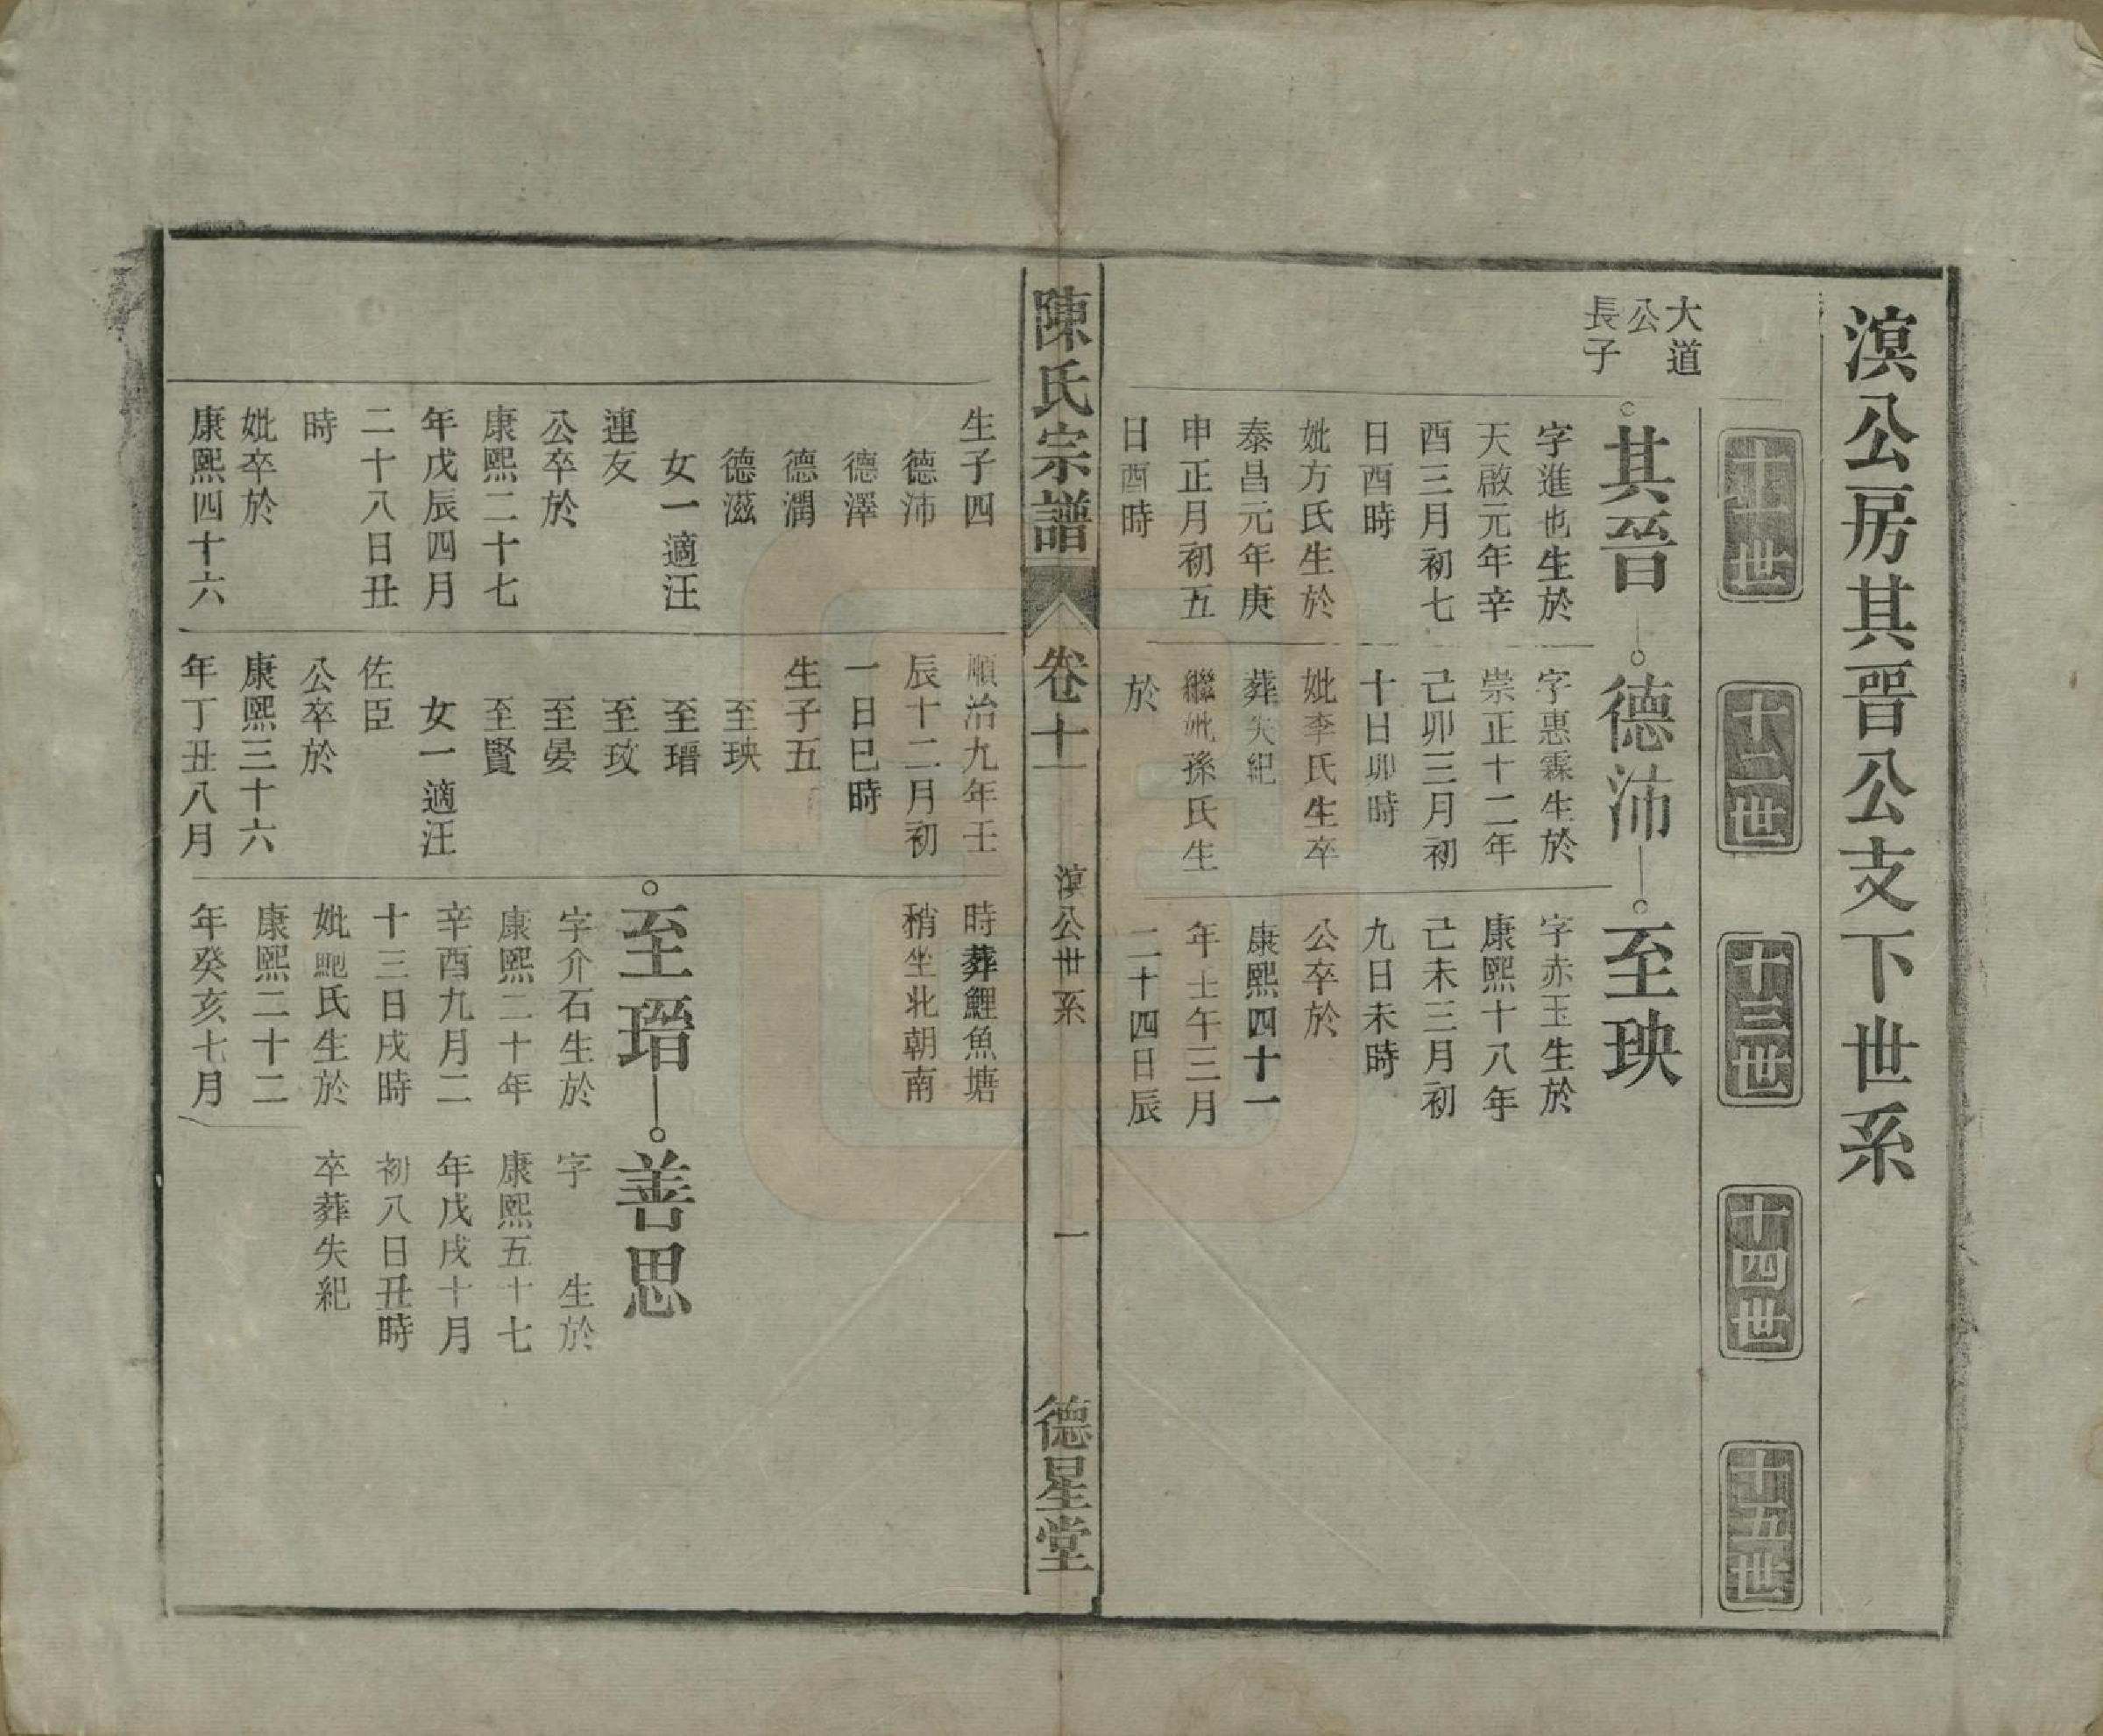 溟公房其晉公支下世系
十一世
十二世
十三世
十四世
十五世
大道
公
長子
其晉
字進也生於
天啟元年辛
酉三月初七
日酉時
妣方氏生於
泰昌元年庚
申正月初五
日酉時
德沛
字惠霖生於
崇正十二年
己卯三月初
十日卯時
妣李氏生卒
葬失紀
繼妣孫氏生
於
至玦
字赤玉生於
康熙十八年
己未三月初
九日未時
公卒於
康熙四十一
年壬午三月
二十四日辰
陳氏宗譜
卷十一
溟公世系
一
德星堂
生子四
德沛
德澤
德潤
德滋
女一適汪
連友
公卒於
康熙二十七
年戊辰四月
二十八日丑
時
妣卒於
康熙四十六
順治九年壬
辰十二月初
一日巳時
生子五
至玦
至瑨
至玫
至晏
至賢
女一適汪
佐臣
公卒於
康熙三十六
年丁丑八月
時葬鯉魚塘
稍坐北朝南
至瑨
字介石生於
康熙二十年
辛酉九月二
十三日戌時
妣鮑氏生於
康熙二十二
年癸亥七月
善思
字 生於
康熙五十七
年戊戌十月
初八日丑時
卒葬失紀